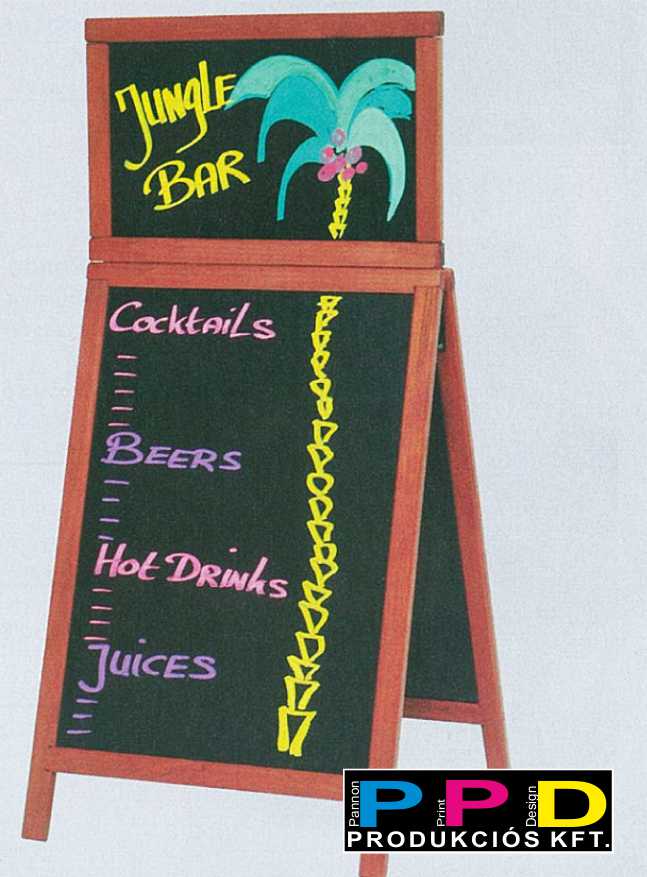 JUNGLE
BAR
Cocktails
BEERS
Hot DRINKS
JUICES
Pannon Print Design
PPD
PRODUKCIÓS KFT.